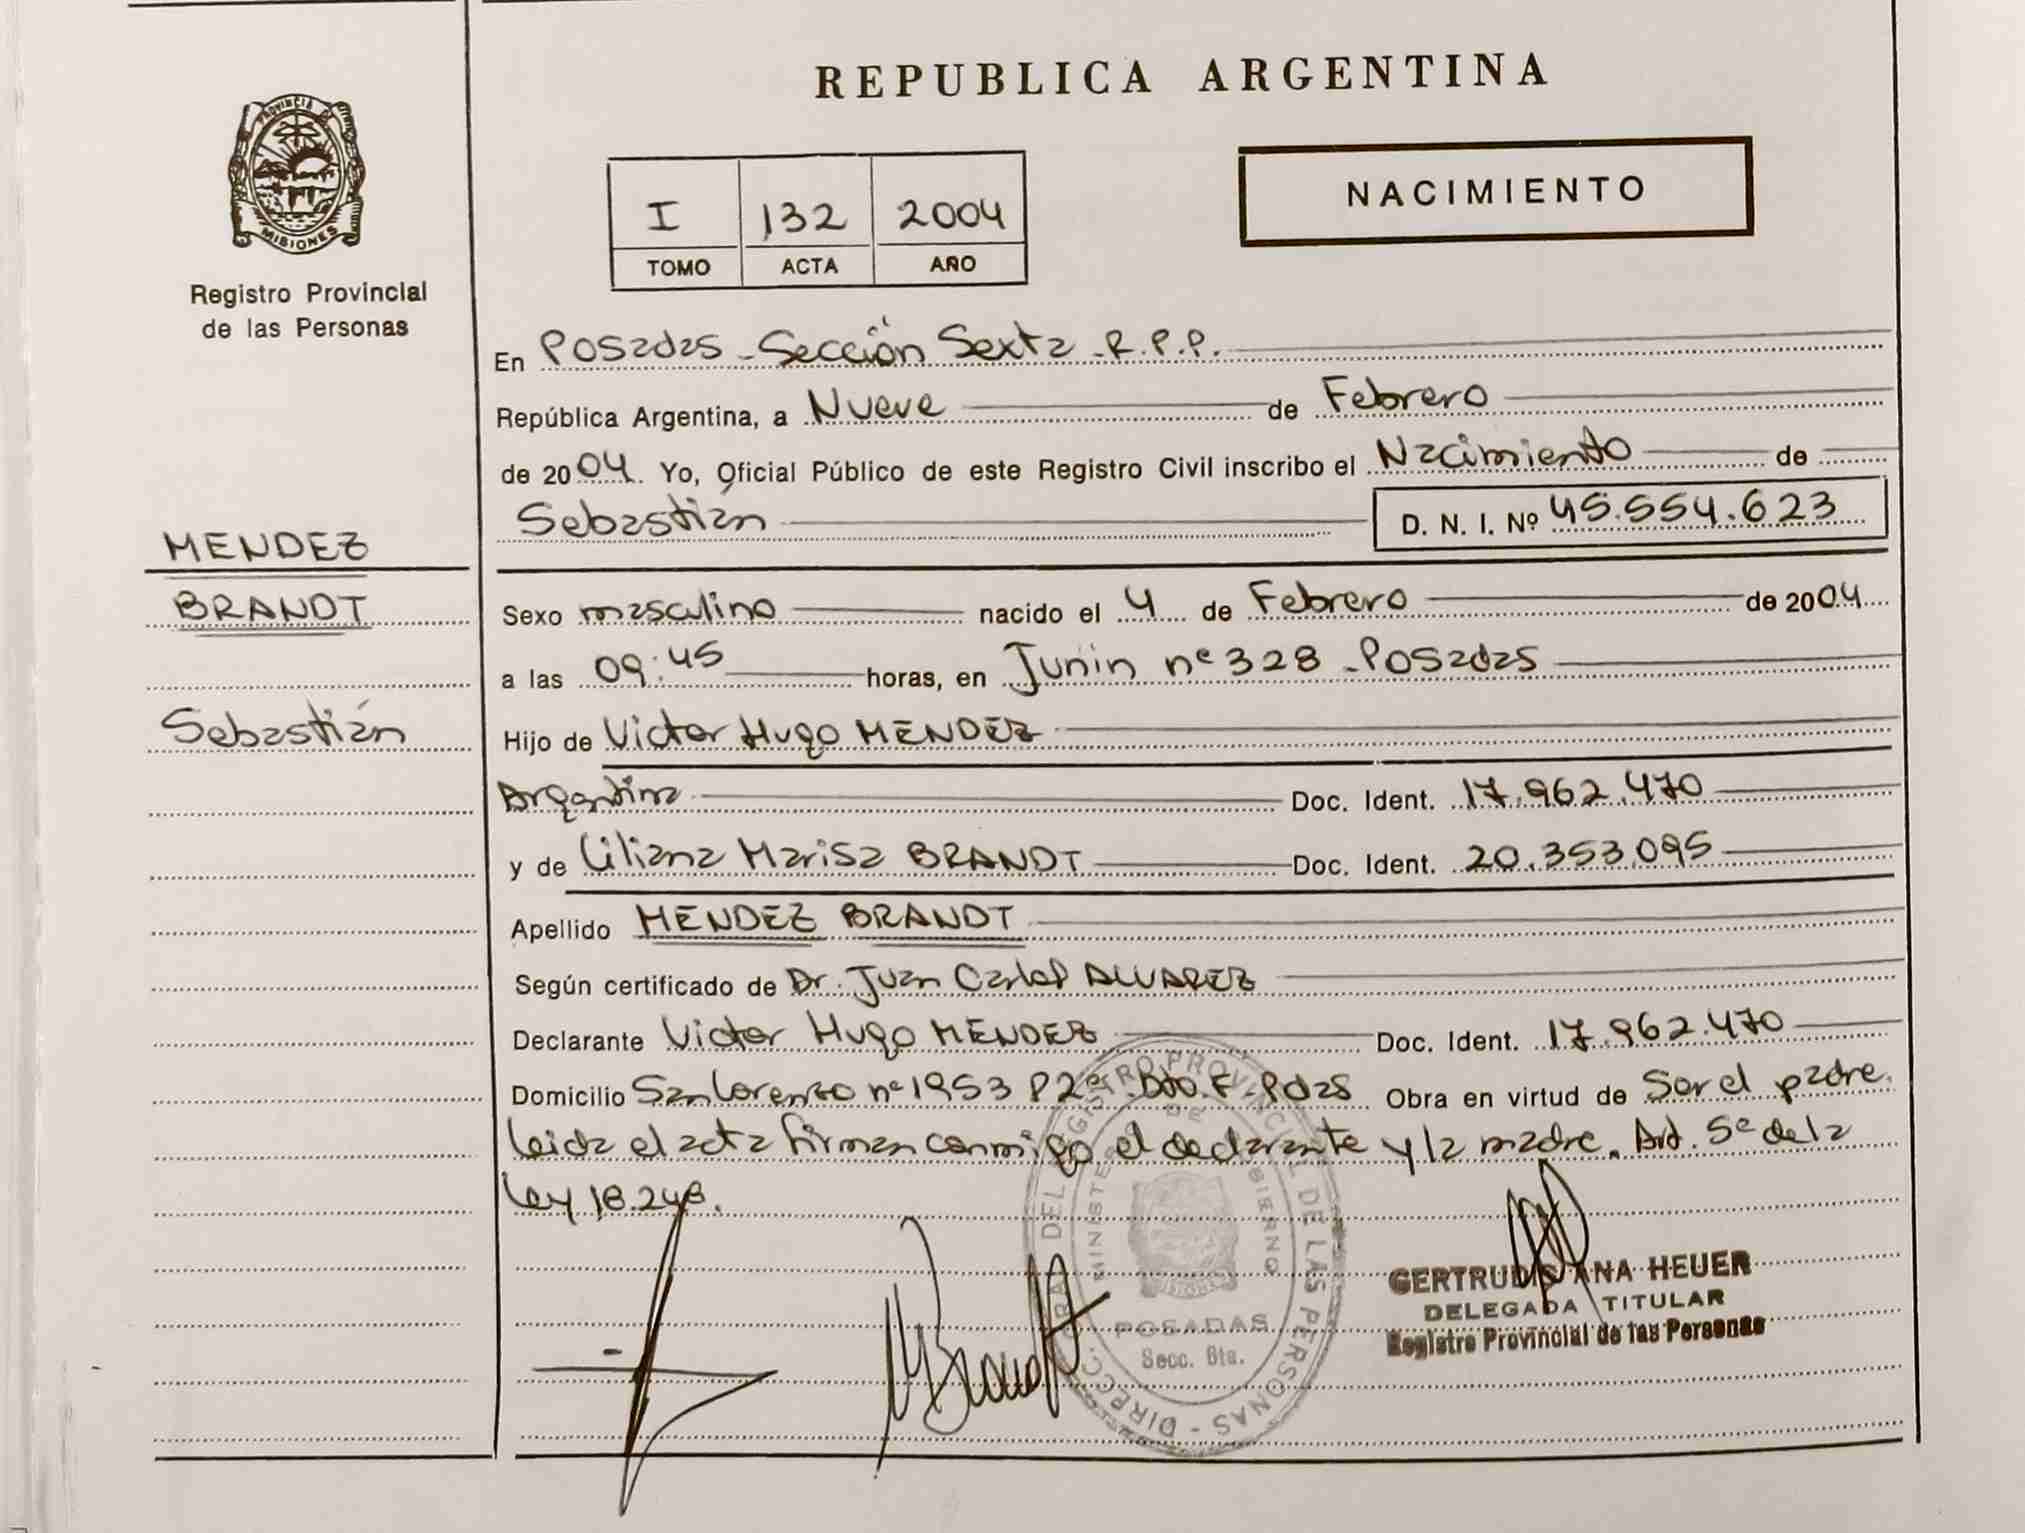 PROVINCIA DE
MISIONES
Registro Provincial
de las Personas
MENDEZ
BRANDT
Sebastián
REPUBLICA ARGENTINA
I 132 2004
TOMO ACTA AÑO
NACIMIENTO
En Posadas - Sección Sexta - R.P.P.
República Argentina, a Nueve de Febrero
de 2004. Yo, Oficial Público de este Registro Civil inscribo el Nacimiento de
Sebastián D. N. I. Nº 45.554.623
Sexo masculino nacido el 4 de Febrero de 2004
a las 09:45 horas, en Junín nº 328 - Posadas
Hijo de Victor Hugo MENDEZ
Argentina Doc. Ident. 17.962.470
y de Liliana Marisa BRANDT Doc. Ident. 20.353.095
Apellido MENDEZ BRANDT
Según certificado de Dr. Juan Carlos ALVAREZ
Declarante Victor Hugo MENDEZ Doc. Ident. 17.962.470
Domicilio San Lorenzo nº 1953 P2º. Dto. F - Pdas Obra en virtud de Ser el padre.
Leida el acta firman conmigo el declarante y la madre. Art. 5º de la
Ley 18.248.
MBrandt
DIRECC. GRAL. DEL REGISTRO PROVINCIAL DE LAS PERSONAS -
MINISTERIO DE GOBIERNO
POSADAS
Secc. 6ta.
GERTRUDIS ANA HEUER
DELEGADA TITULAR
Registro Provincial de las Personas